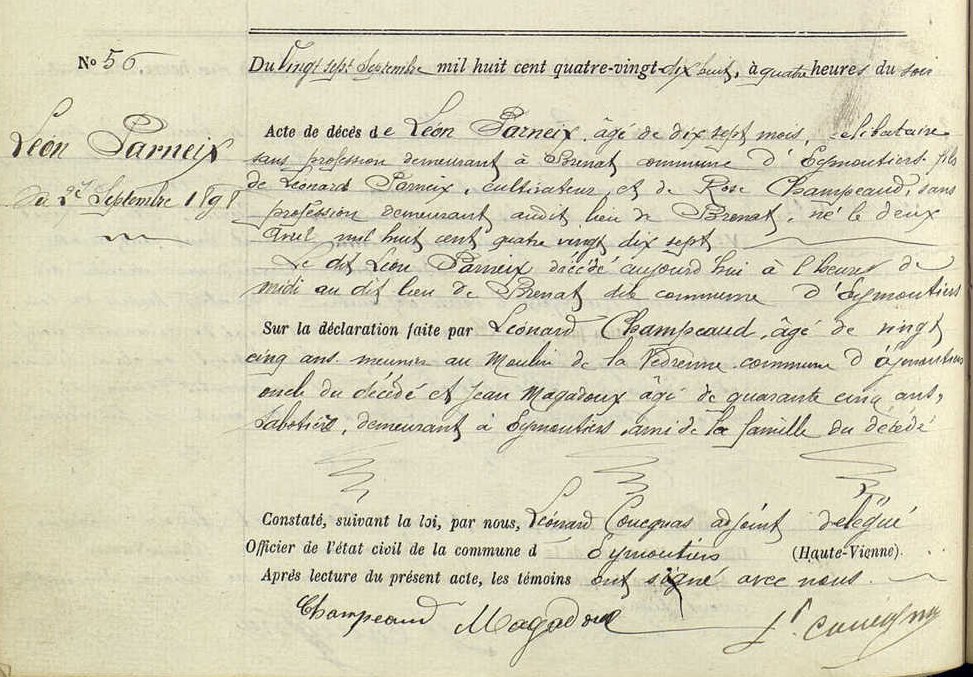 No 56
Du Vingt sept Septembre mil huit cent quatre-vingt-dix huit, à quatre heures du soir
Léon Parneix
Du 27 Septembre 1898
Acte de décès de Léon Parneix, âgé de dix sept mois, celibataire
sans profession demeurant à Brenat commune d'Eymoutiers fils
de Léonard Parneix, cultivateur, et de Rose Champeaud, sans
profession demeurant audit lieu de Brenat, né le deux
Avril mil huit cent quatre vingt dix sept
Le dit Léon Parneix décédé aujourd'hui à l'heure de
midi au dit lieu de Brenat dite commune d'Eymoutiers
Sur la déclaration faite par Léonard Champeaud, âgé de vingt
cinq ans meunier au Moulin de la Vedrenne commune d'Eymoutiers
oncle du décédé et Jean Magadoux âgé de quarante cinq ans,
Sabotier, demeurant à Eymoutiers, ami de la famille du décédé
Constaté, suivant la loi, par nous, Léonard Couegnas adjoint délégué
Officier de l'état civil de la commune d Eymoutiers (Haute-Vienne).
Après lecture du présent acte, les témoins ont signé avec nous.
Champeaud Magadoux